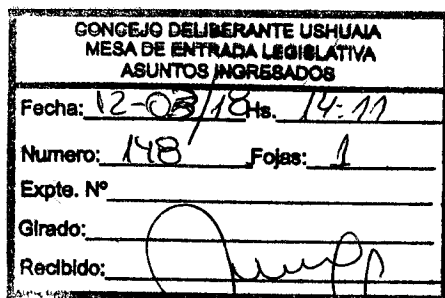 CONCEJO DELIBERANTE USHUAIA
MESA DE ENTRADA LEGISLATIVA
ASUNTOS INGRESADOS
Fecha: 12-03/18 Hs. 14:11
Numero: 148 Fojas: 1
Expte. Nº
Girado:
Recibido: